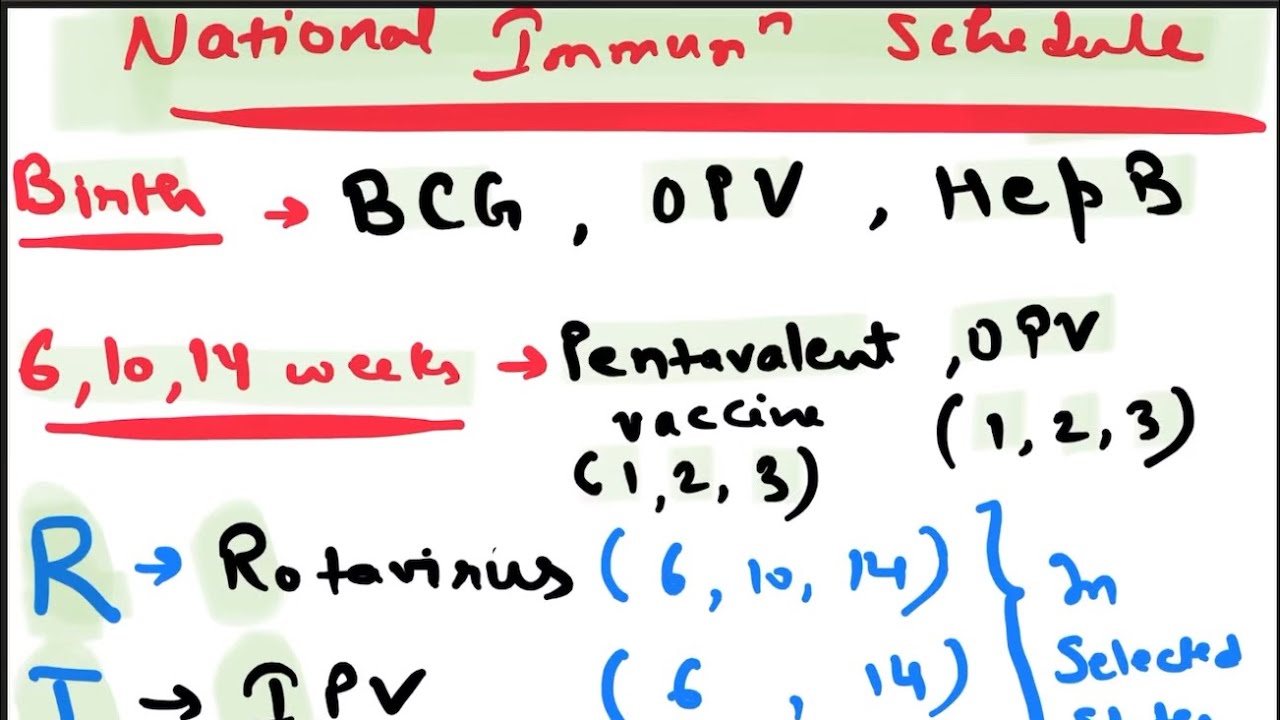 National Immunⁿ Schedule
Birth → BCG, OPV, Hep B
6, 10, 14 weeks → Pentavalent, OPV
vaccine
(1, 2, 3) (1, 2, 3)
R → Rotavirius (6, 10, 14) } In
Selected
I → IPV (6, 14)